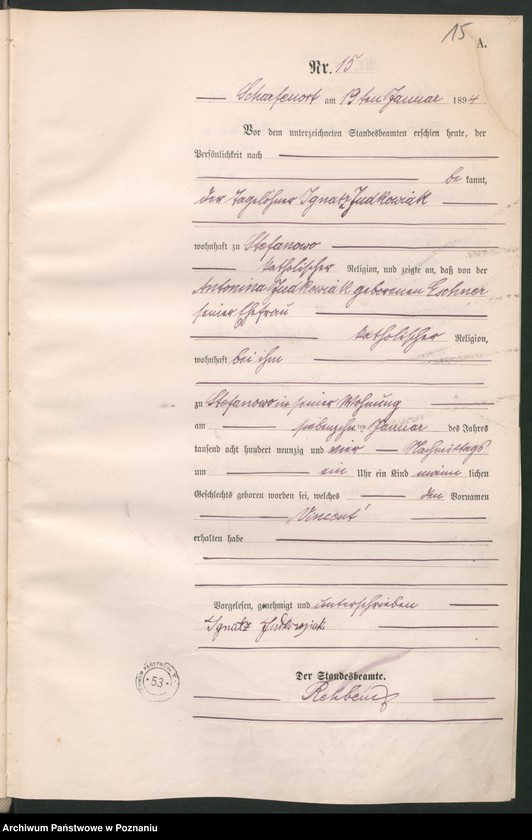 15
A.
Nr. 15
Scharfenort am 19ten Januar 1894
Vor dem unterzeichneten Standesbeamten erschien heute, der
Persönlichkeit nach
be kannt,
der Tagelöhner Ignatz Judkowiak
wohnhaft zu Stefanowo
katholischer Religion, und zeigte an, daß von der
Antonina Judkowiak geborenen
seiner Ehefrau
katholischer Religion,
wohnhaft bei ihm
zu Stefanowo in seiner Wohnung
am siebenzehn ten Januar des Jahres
tausend acht hundert neunzig und vier Nachmittags
um ein Uhr ein Kind männ lichen
Geschlechts geboren worden sei, welches den Vornamen
Vincent
erhalten habe
Vorgelesen, genehmigt und unterschrieben
Ignatz Judkowiak
Der Standesbeamte.
53
Archiwum Państwowe w Poznaniu